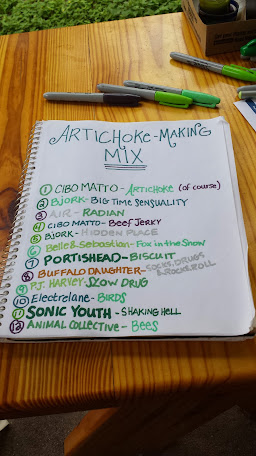 ARTICHOKE-MAKING
MIX
1 CIBO MATTO - ARTICHOKE (of course)
2 BJORK - BIG TIME SENSUALITY
3 AIR - RADIAN
4 CIBO MATTO - BEEF JERKY
5 BJORK - HIDDEN PLACE
6 Belle & Sebastian - Fox in the Snow
7 PORTISHEAD - BISCUIT
8 BUFFALO DAUGHTER - SOCKS, DRUGS & ROCK & ROLL
9 P.J. HARVEY - SLOW DRUG
10 Electrelane - BIRDS
11 SONIC YOUTH - SHAKING HELL
12 ANIMAL COLLECTIVE - BEES